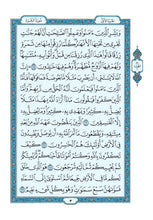 الجزء الأول سورة البقرة
وَبَشِّرِ الَّذِينَ ءَامَنُوا وَعَمِلُوا الصَّٰلِحَٰتِ أَنَّ لَهُمْ جَنَّٰتٍ
تَجْرِى مِن تَحْتِهَا الْأَنْهَٰرُ كُلَّمَا رُزِقُوا مِنْهَا مِن ثَمَرَةٍ
رِّزْقًا قَالُوا هَٰذَا الَّذِى رُزِقْنَا مِن قَبْلُ وَأُتُوا بِهِ مُتَشَٰبِهًا
وَلَهُمْ فِيهَا أَزْوَٰجٌ مُّطَهَّرَةٌ وَهُمْ فِيهَا خَٰلِدُونَ ٢٥ ۞ إِنَّ اللَّهَ لَا
يَسْتَحْىِ أَن يَضْرِبَ مَثَلًا مَّا بَعُوضَةً فَمَا فَوْقَهَا فَأَمَّا الَّذِينَ
ءَامَنُوا فَيَعْلَمُونَ أَنَّهُ الْحَقُّ مِن رَّبِّهِمْ وَأَمَّا الَّذِينَ كَفَرُوا
فَيَقُولُونَ مَاذَا أَرَادَ اللَّهُ بِهَٰذَا مَثَلًا يُضِلُّ بِهِ كَثِيرًا
وَيَهْدِى بِهِ كَثِيرًا وَمَا يُضِلُّ بِهِ إِلَّا الْفَٰسِقِينَ ٢٦
الَّذِينَ يَنقُضُونَ عَهْدَ اللَّهِ مِن بَعْدِ مِيثَٰقِهِ وَيَقْطَعُونَ
مَا أَمَرَ اللَّهُ بِهِ أَن يُوصَلَ وَيُفْسِدُونَ فِى الْأَرْضِ أُولَٰئِكَ
هُمُ الْخَٰسِرُونَ ٢٧ كَيْفَ تَكْفُرُونَ بِاللَّهِ وَكُنتُمْ أَمْوَٰتًا
فَأَحْيَٰكُمْ ثُمَّ يُمِيتُكُمْ ثُمَّ يُحْيِيكُمْ ثُمَّ إِلَيْهِ تُرْجَعُونَ ٢٨
هُوَ الَّذِى خَلَقَ لَكُم مَّا فِى الْأَرْضِ جَمِيعًا ثُمَّ اسْتَوَىٰ إِلَى
السَّمَاءِ فَسَوَّىٰهُنَّ سَبْعَ سَمَٰوَٰتٍ وَهُوَ بِكُلِّ شَىْءٍ عَلِيمٌ ٢٩
٥